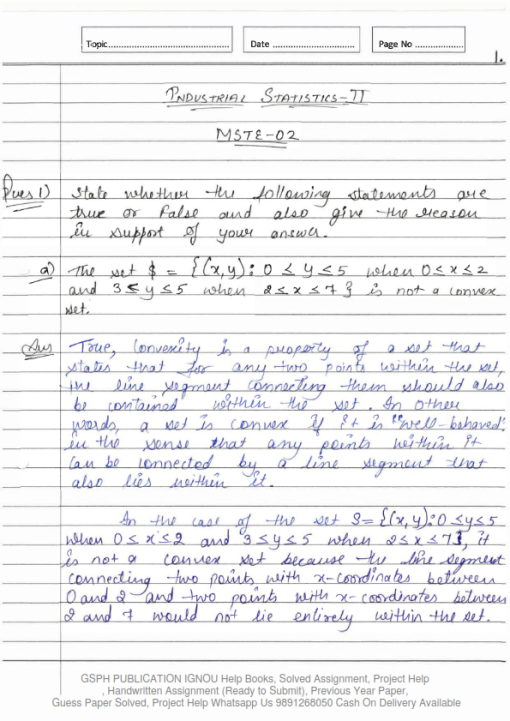 Topic.......................................... Date ............................ Page No .................
1.
INDUSTRIAL STATISTICS-II
MSTE-02
Ques 1) State whether the following statements are
true or False and also give the reason
in support of your answer.
a) The set $ = {(x,y): 0 ≤ y ≤ 5 when 0 ≤ x ≤ 2
and 3 ≤ y ≤ 5 when 2 ≤ x ≤ 7 } is not a convex
set.
Ans True, Convexity is a property of a set that
states that for any two points within the set,
the line segment connecting them should also
be contained within the set. In other
words, a set is convex if it is "well-behaved"
in the sense that any points within it
can be connected by a line segment that
also lies within it.
In the case of the set S = {(x,y): 0 ≤ y ≤ 5
when 0 ≤ x ≤ 2 and 3 ≤ y ≤ 5 when 2 ≤ x ≤ 7}, it
is not a convex set because the line segment
connecting two points with x-coordinates between
0 and 2 and two points with x-coordinates between
2 and 7 would not lie entirely within the set.
GSPH PUBLICATION IGNOU Help Books, Solved Assignment, Project Help
, Handwritten Assignment (Ready to Submit), Previous Year Paper,
Guess Paper Solved, Project Help Whatsapp Us 9891268050 Cash On Delivery Available